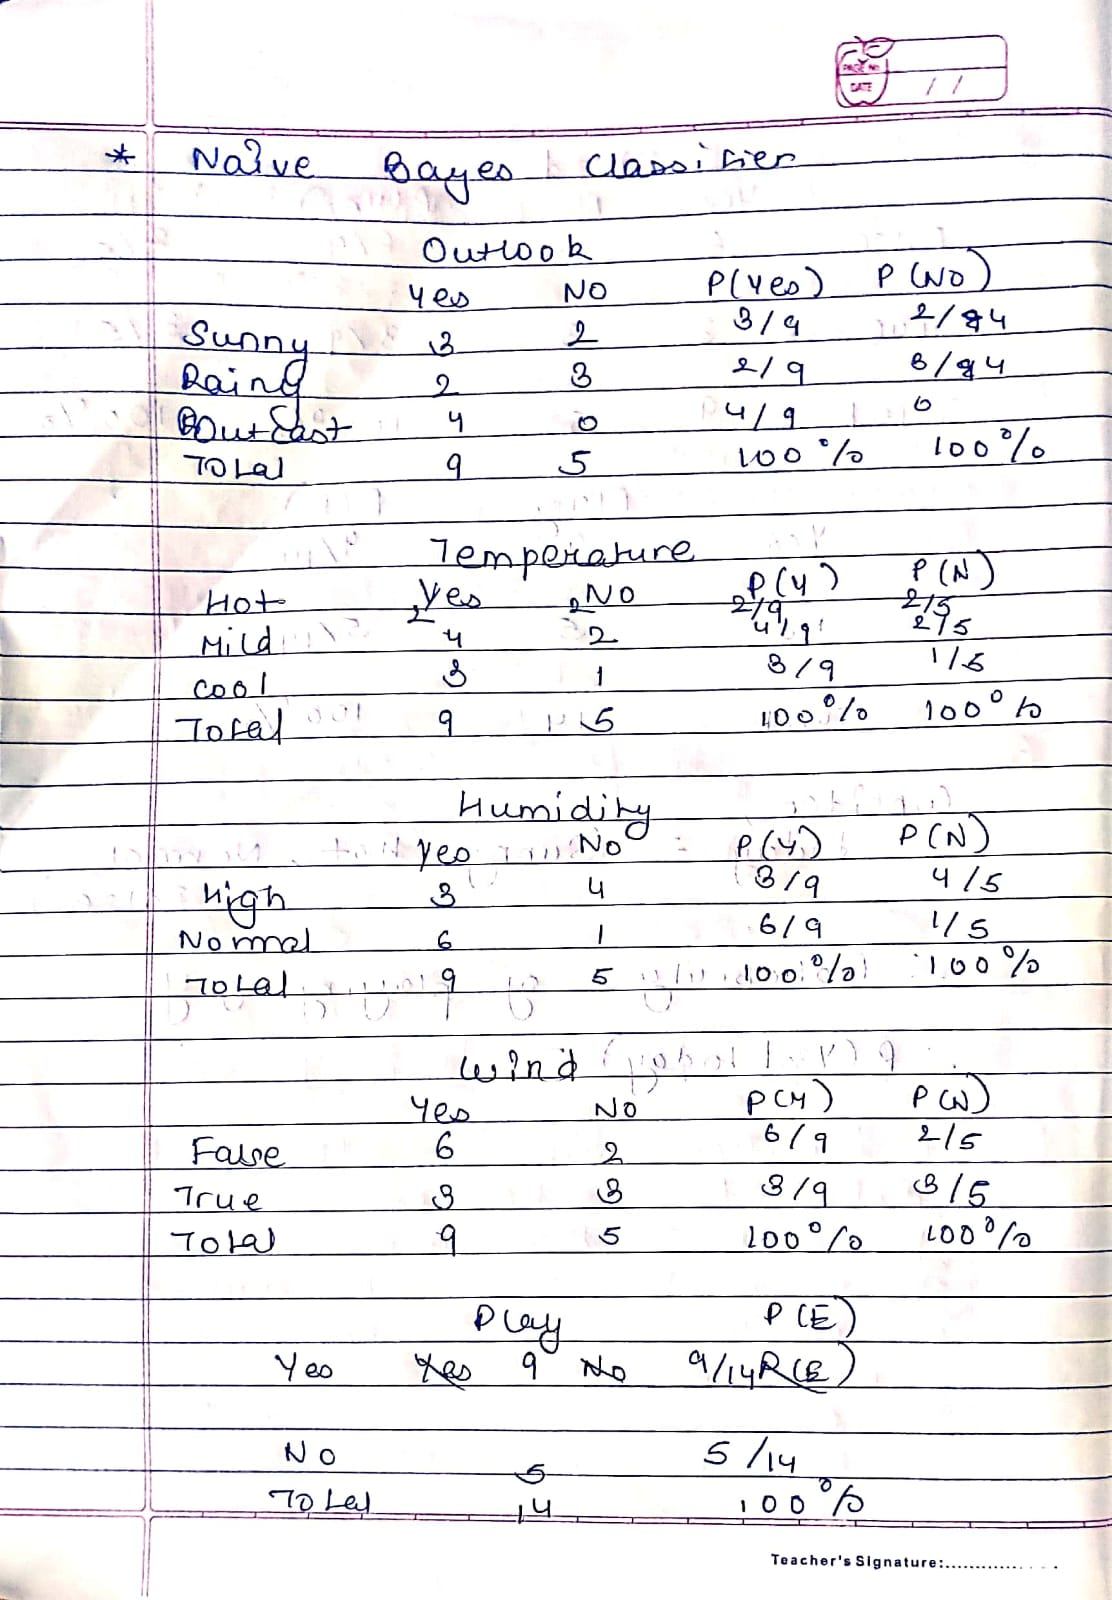 PAGE No
DATE / /
* Naïve Bayes Classifier
Outlook
Yes NO P(Yes) P(NO)
Sunny 3 2 3/9 2/4
Rainy 2 3 2/9 3/4
OutCast 4 0 4/9 0
Total 9 5 100% 100%
Temperature
Yes NO P(Y) P(N)
Hot 2 2 2/9 2/5
Mild 4 2 4/9 2/5
Cool 3 1 3/9 1/5
Total 9 5 100% 100%
Humidity
Yes No P(Y) P(N)
High 3 4 3/9 4/5
Normal 6 1 6/9 1/5
Total 9 5 100% 100%
Wind
Yes NO P(Y) P(N)
False 6 2 6/9 2/5
True 3 3 3/9 3/5
Total 9 5 100% 100%
Play P(E)
Yes Yes 9 No 9/14 R(E)
NO 5 5/14
Total 14 100%
Teacher's Signature:................